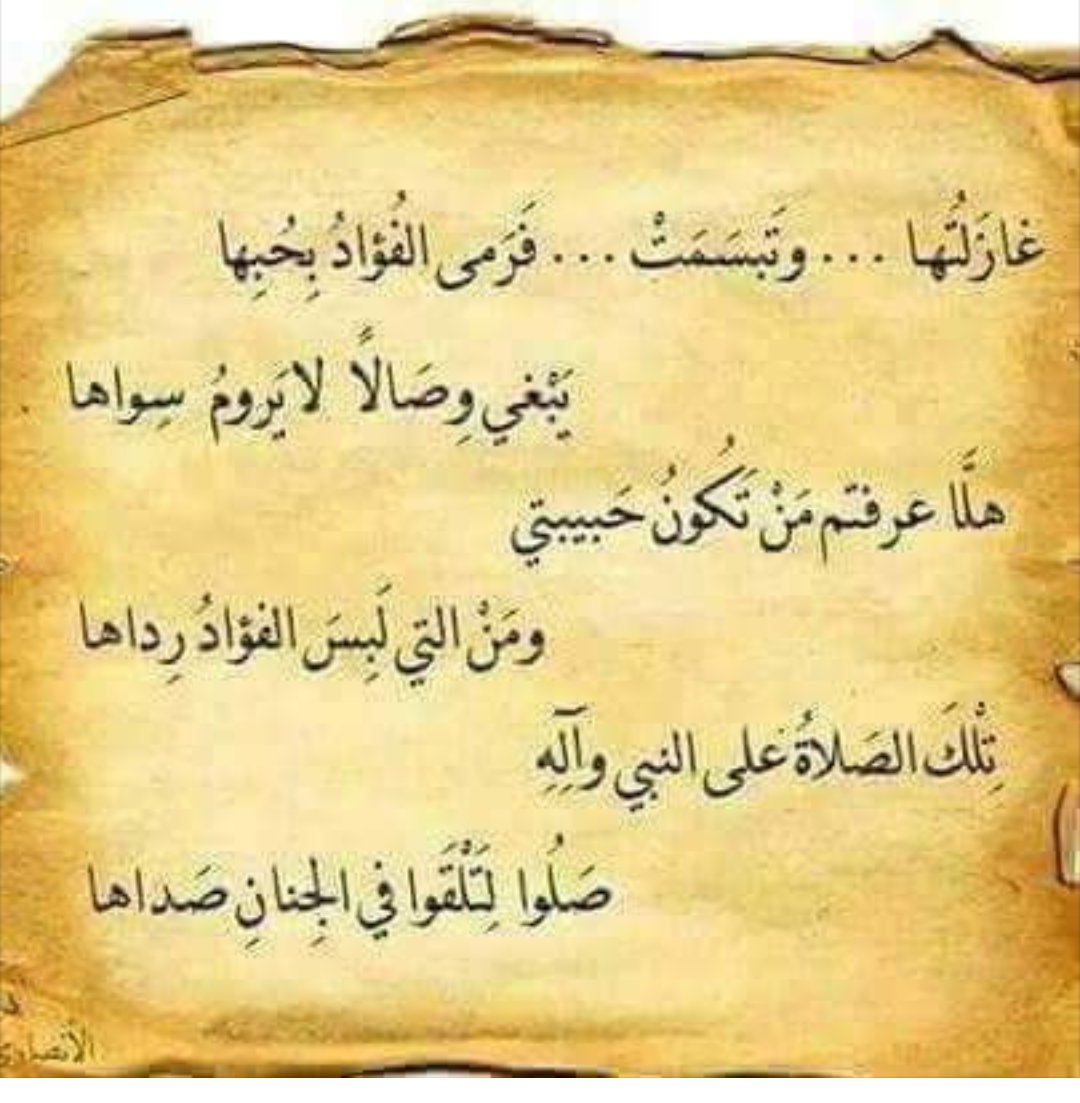 غازَلتُها ... وتَبسَمَتْ ... فَرَمى الفُؤادُ بِحُبِها
يَبْغي وِصَالًا لا يَرومُ سِواها
هلَّا عرفتم مَنْ تَكُونُ حَبيبتي
ومَنْ التي لَبِسَ الفؤادُ رِداها
تِلْكَ الصَلاةُ على النبي وآلِهِ
صَلُوا لِتَلْقَوا في الجِنانِ صَداها
الأنصاري